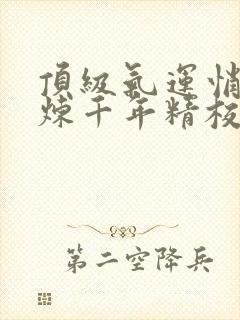 頂級氣運悄
煉千年精校
第二空降兵